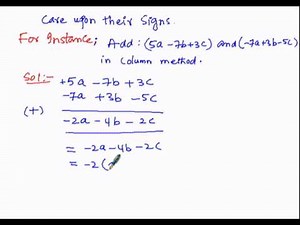 Care upon their Signs.
For Instance; Add: (5a -7b+3c) and (-7a+3b-5c)
in Column method.
Sol:- +5a - 7b + 3c
-7a + 3b - 5c
(+)
-2a - 4b - 2c
= -2a - 4b - 2c
= -2(